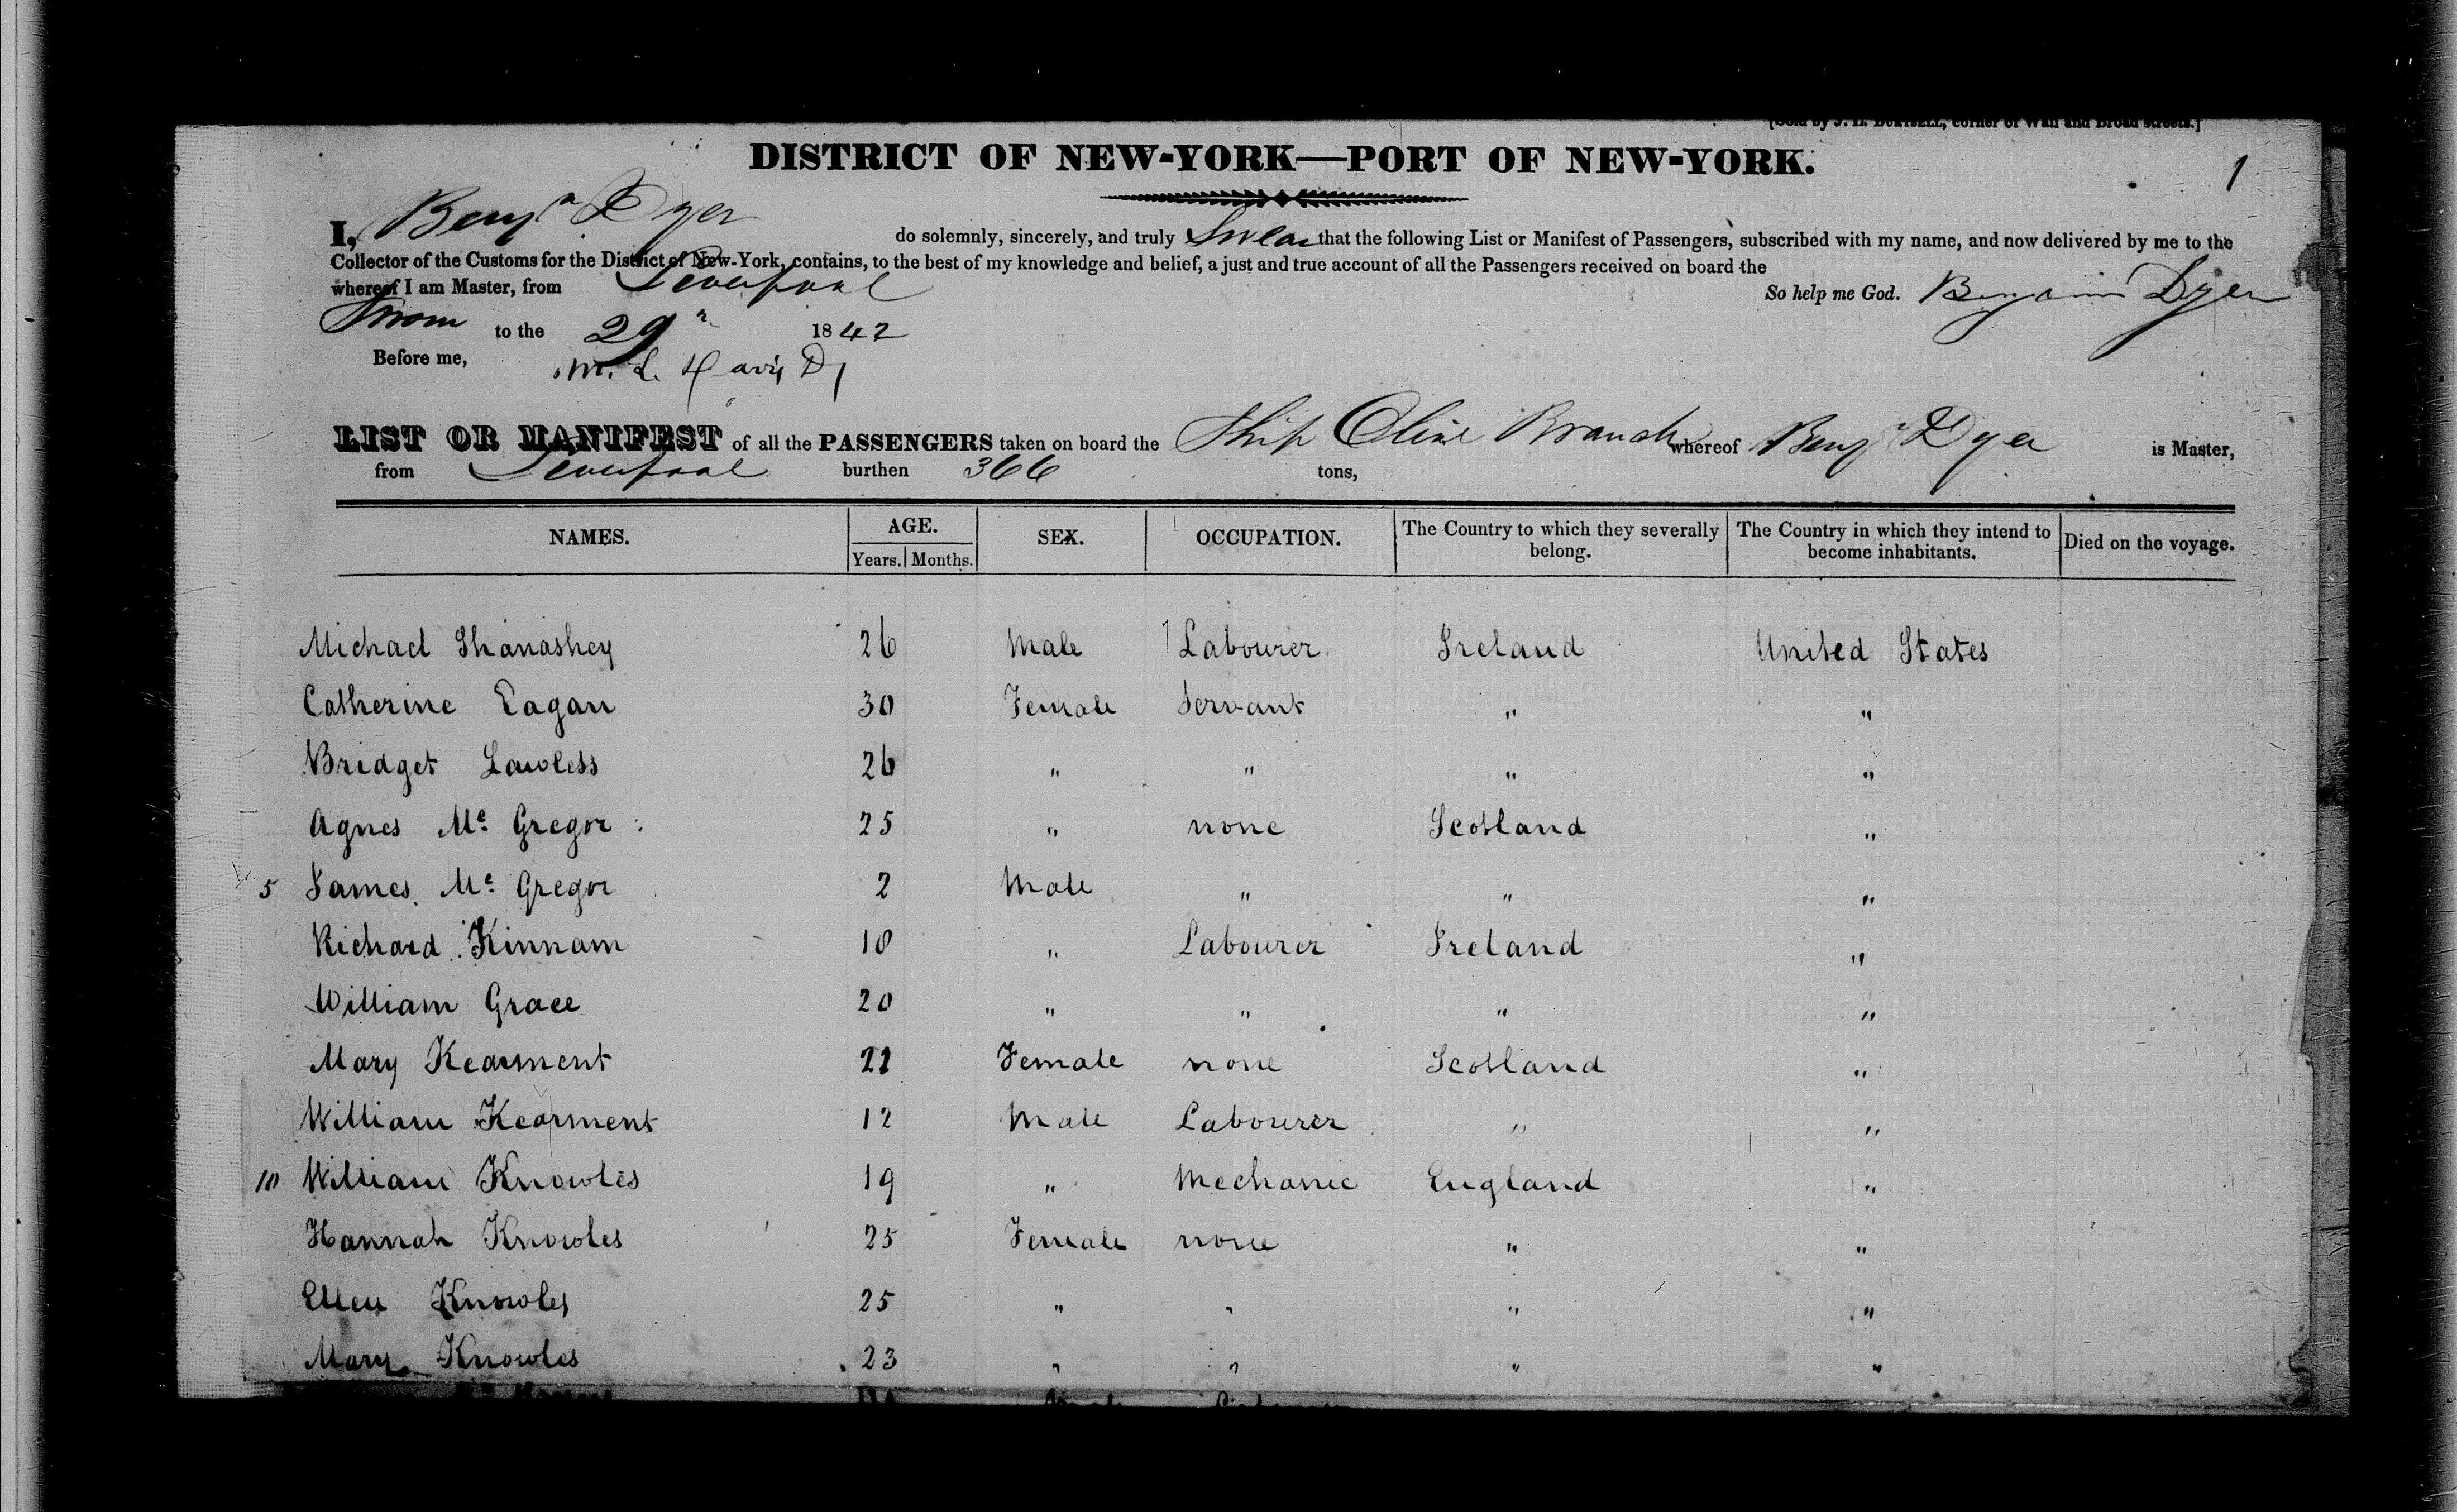 [Sold by J. L. BURTSELL, corner of Wall and Broad streets.]
DISTRICT OF NEW-YORK—PORT OF NEW-YORK.
1
I, Benjn Dyer do solemnly, sincerely, and truly Swear that the following List or Manifest of Passengers, subscribed with my name, and now delivered by me to the
Collector of the Customs for the District of New-York, contains, to the best of my knowledge and belief, a just and true account of all the Passengers received on board the
whereof I am Master, from Liverpool So help me God. Benjamin Dyer
Sworn to the 29 1842
Before me, M. L. Davis
LIST OR MANIFEST of all the PASSENGERS taken on board the Ship Olive Branch whereof Benjn Dyer is Master,
from Liverpool burthen 366 tons,
NAMES. AGE. Years. Months. SEX. OCCUPATION. The Country to which they severally belong. The Country in which they intend to become inhabitants. Died on the voyage.
Michael Shanashey 26 Male Labourer Ireland United States
Catherine Eagan 30 Female Servant " "
Bridget Lawless 26 " " " "
Agnes Mc Gregor 25 " none Scotland "
5 James Mc Gregor 2 Male " " "
Richard Kinnam 18 " Labourer Ireland "
William Grace 20 " " " "
Mary Kearment 22 Female none Scotland "
William Kearment 12 Male Labourer " "
10 William Knowles 19 " Mechanic England "
Hannah Knowles 25 Female none " "
Ellen Knowles 25 " " " "
Mary Knowles 23 " " " "